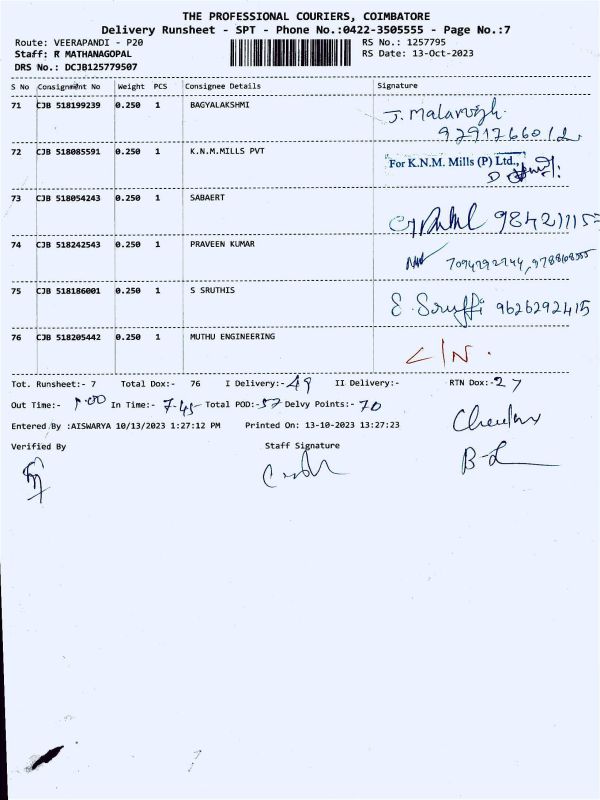 THE PROFESSIONAL COURIERS, COIMBATORE
Delivery Runsheet - SPT - Phone No.:0422-3505555 - Page No.:7
Route: VEERAPANDI - P20 RS No.: 1257795
Staff: R MATHANAGOPAL RS Date: 13-Oct-2023
DRS No.: DCJB125779507
S No Consignment No Weight PCS Consignee Details Signature
71 CJB 518199239 0.250 1 BAGYALAKSHMI J. Malarvizh.
72 CJB 518085591 0.250 1 K.N.M.MILLS PVT For K.N.M. Mills (P) Ltd.,
73 CJB 518054243 0.250 1 SABAERT
74 CJB 518242543 0.250 1 PRAVEEN KUMAR
75 CJB 518186001 0.250 1 S SRUTHIS 9626292415
76 CJB 518205442 0.250 1 MUTHU ENGINEERING C/N.
Tot. Runsheet:- 7 Total Dox:- 76 I Delivery:- 49 II Delivery:- RTN Dox:- 27
Out Time:- 1.00 In Time:- 7.45 Total POD:- 57 Delvy Points:- 70
Entered By :AISWARYA 10/13/2023 1:27:12 PM Printed On: 13-10-2023 13:27:23
Verified By Staff Signature